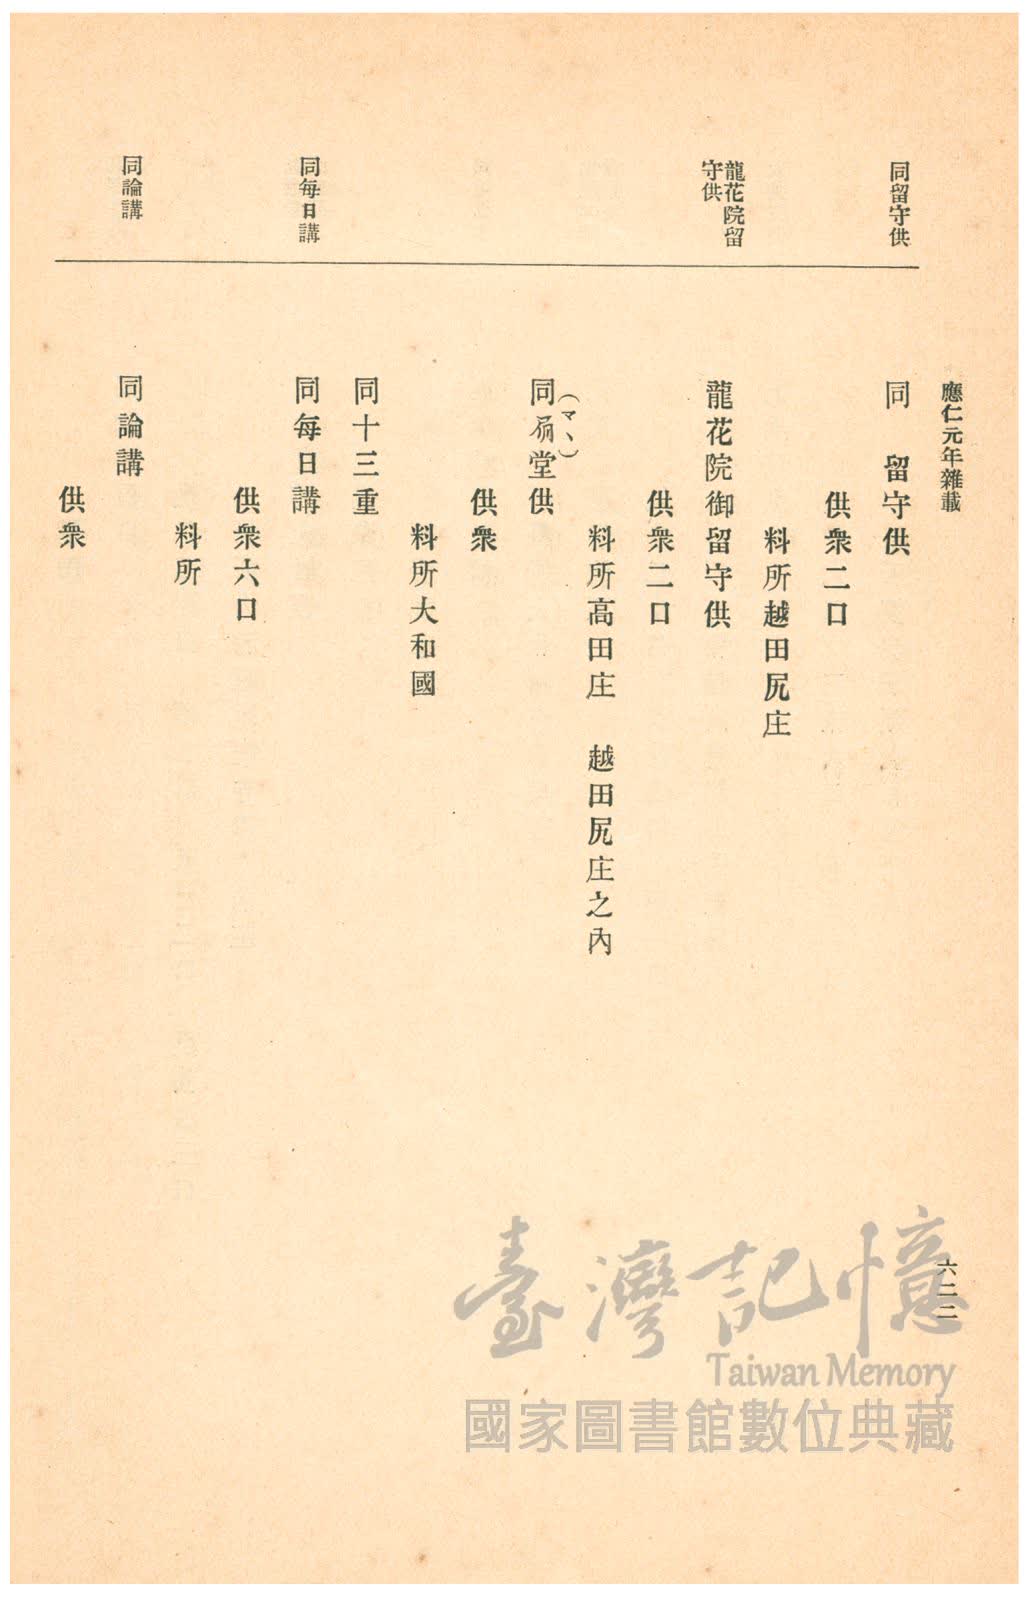 應仁元年雜載
六二二
同留守供
龍花院留
守供
同每日講
同論講
同　留守供
供衆二口
料所越田尻庄
龍花院御留守供
供衆二口
料所高田庄　越田尻庄之內
(マヽ)
同堂供
供衆
料所大和國
同十三重
同每日講
供衆六口
料所
同論講
供衆
臺灣記憶
Taiwan Memory
國家圖書館數位典藏